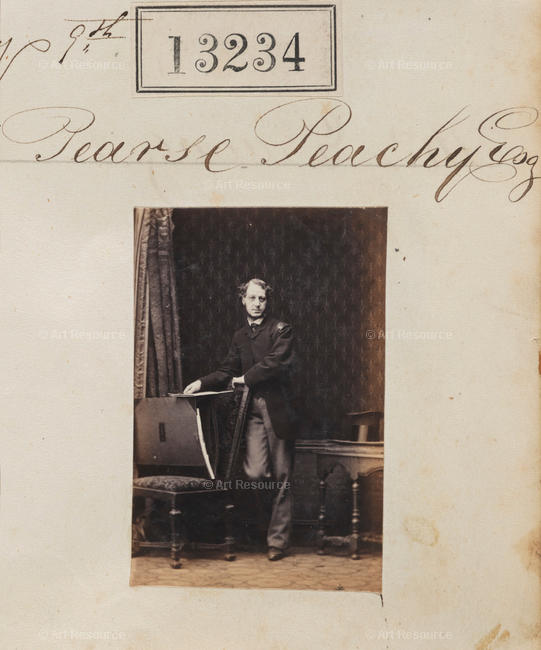 9th
13234
Pearse Peachy Esq
© Art Resource
© Art Resource
© Art Resource
© Art Resource
© Art Resource
© Art Resource
© Art Resource
© Art Resource